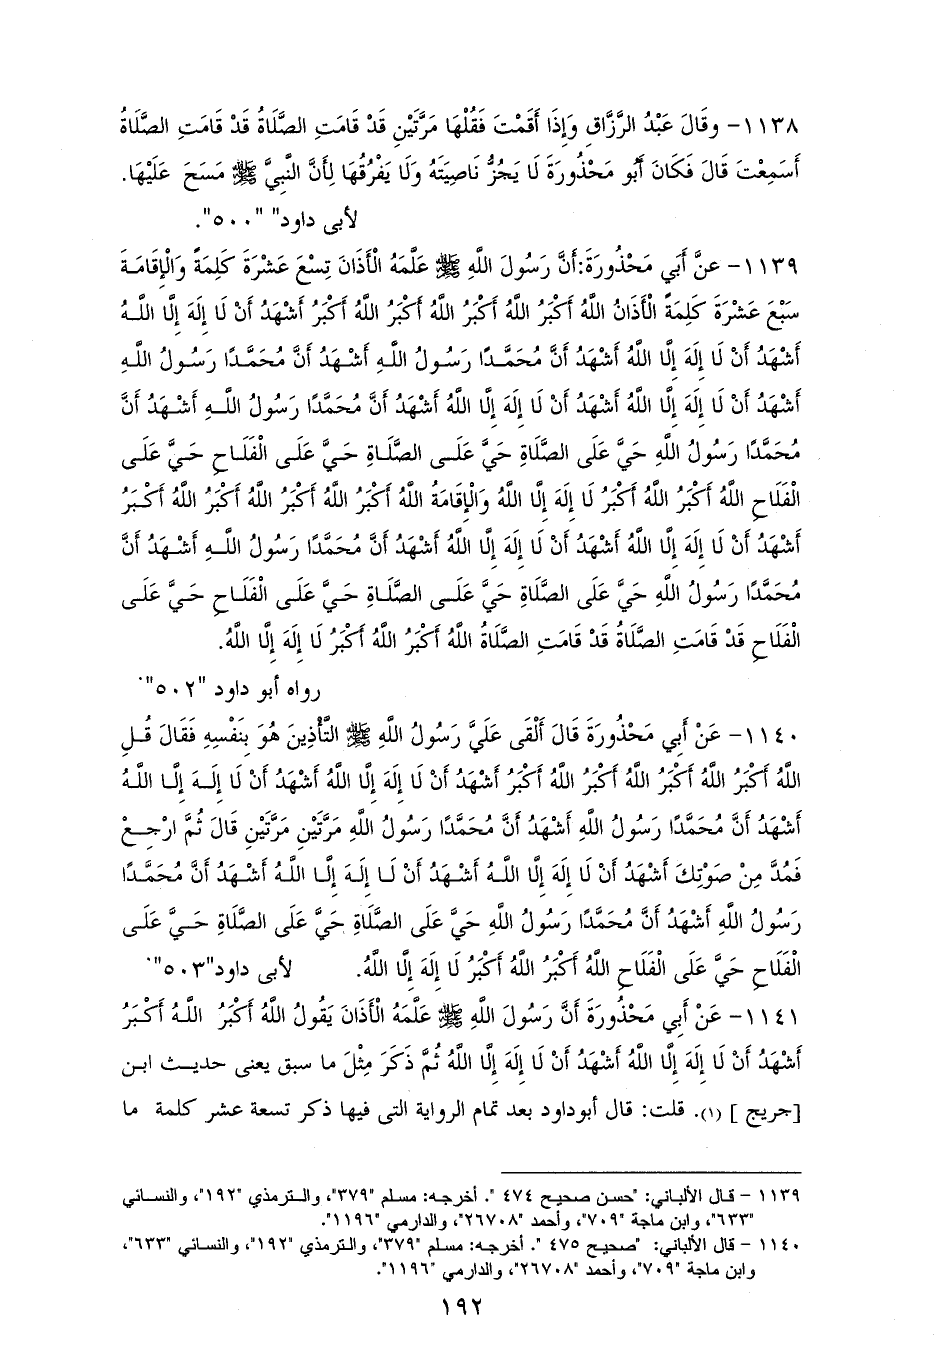 ١١٣٨- وقَالَ عَبْدُ الرَّزَّاقِ وَإِذَا أَقَمْتَ فَقُلْهَا مَرَّتَيْنِ قَدْ قَامَتِ الصَّلَاةُ قَدْ قَامَتِ الصَّلَاةُ
أَسَمِعْتَ قَالَ فَكَانَ أَبُو مَحْذُورَةَ لَا يَجُزُّ نَاصِيَتَهُ وَلَا يَفْرُقُهَا لِأَنَّ النَّبِيَّ ﷺ مَسَحَ عَلَيْهَا.
لأبى داود" "٥٠٠".
١١٣٩- عنَّ أَبِي مَحْذُورَةَ:أَنَّ رَسُولَ اللَّهِ ﷺ عَلَّمَهُ الْأَذَانَ تِسْعَ عَشْرَةَ كَلِمَةً وَالْإِقَامَةَ
سَبْعَ عَشْرَةَ كَلِمَةً الْأَذَانُ اللَّهُ أَكْبَرُ اللَّهُ أَكْبَرُ اللَّهُ أَكْبَرُ اللَّهُ أَكْبَرُ أَشْهَدُ أَنْ لَا إِلَهَ إِلَّا اللَّـهُ
أَشْهَدُ أَنْ لَا إِلَهَ إِلَّا اللَّهُ أَشْهَدُ أَنَّ مُحَمَّـدًا رَسُولُ اللَّـهِ أَشْـهَدُ أَنَّ مُحَمَّـدًا رَسُـولُ اللَّـهِ
أَشْهَدُ أَنْ لَا إِلَهَ إِلَّا اللَّهُ أَشْهَدُ أَنْ لَا إِلَهَ إِلَّا اللَّهُ أَشْهَدُ أَنَّ مُحَمَّدًا رَسُولُ اللَّـهِ أَشْـهَدُ أَنَّ
مُحَمَّدًا رَسُولُ اللَّهِ حَيَّ عَلَى الصَّلَاةِ حَيَّ عَلَـى الصَّلَـاةِ حَـيَّ عَلَـى الْفَلَـاحِ حَـيَّ عَلَـى
الْفَلَاحِ اللَّهُ أَكْبَرُ اللَّهُ أَكْبَرُ لَا إِلَهَ إِلَّا اللَّهُ وَالْإِقَامَةُ اللَّهُ أَكْبَرُ اللَّهُ أَكْبَرُ اللَّهُ أَكْبَرُ اللَّهُ أَكْـبَرُ
أَشْهَدُ أَنْ لَا إِلَهَ إِلَّا اللَّهُ أَشْهَدُ أَنْ لَا إِلَهَ إِلَّا اللَّهُ أَشْهَدُ أَنَّ مُحَمَّدًا رَسُولُ اللَّـهِ أَشْـهَدُ أَنَّ
مُحَمَّدًا رَسُولُ اللَّهِ حَيَّ عَلَى الصَّلَاةِ حَيَّ عَلَـى الصَّلَـاةِ حَـيَّ عَلَـى الْفَلَـاحِ حَـيَّ عَلَـى
الْفَلَاحِ قَدْ قَامَتِ الصَّلَاةُ قَدْ قَامَتِ الصَّلَاةُ اللَّهُ أَكْبَرُ اللَّهُ أَكْبَرُ لَا إِلَهَ إِلَّا اللَّهُ.
رواه أبو داود "٥٠٢".
١١٤٠- عَنْ أَبِي مَحْذُورَةَ قَالَ أَلْقَى عَلَيَّ رَسُولُ اللَّهِ ﷺ التَّأْذِينَ هُوَ بِنَفْسِهِ فَقَالَ قُـلِ
اللَّهُ أَكْبَرُ اللَّهُ أَكْبَرُ اللَّهُ أَكْبَرُ اللَّهُ أَكْبَرُ أَشْهَدُ أَنْ لَا إِلَهَ إِلَّا اللَّهُ أَشْهَدُ أَنْ لَا إِلَـهَ إِلَّـا اللَّـهُ
أَشْهَدُ أَنَّ مُحَمَّدًا رَسُولُ اللَّهِ أَشْهَدُ أَنَّ مُحَمَّدًا رَسُولُ اللَّهِ مَرَّتَيْنِ مَرَّتَيْنِ قَالَ ثُمَّ ارْجِـعْ
فَمُدَّ مِنْ صَوْتِكَ أَشْهَدُ أَنْ لَا إِلَهَ إِلَّا اللَّـهُ أَشْـهَدُ أَنْ لَـا إِلَـهَ إِلَّـا اللَّـهُ أَشْـهَدُ أَنَّ مُحَمَّـدًا
رَسُولُ اللَّهِ أَشْهَدُ أَنَّ مُحَمَّدًا رَسُولُ اللَّهِ حَيَّ عَلَى الصَّلَاةِ حَيَّ عَلَى الصَّلَاةِ حَـيَّ عَلَـى
الْفَلَاحِ حَيَّ عَلَى الْفَلَاحِ اللَّهُ أَكْبَرُ اللَّهُ أَكْبَرُ لَا إِلَهَ إِلَّا اللَّهُ. لأبى داود"٥٠٣".
١١٤١- عَنْ أَبِي مَحْذُورَةَ أَنَّ رَسُولَ اللَّهِ ﷺ عَلَّمَهُ الْأَذَانَ يَقُولُ اللَّهُ أَكْبَرُ اللَّـهُ أَكْـبَرُ
أَشْهَدُ أَنْ لَا إِلَهَ إِلَّا اللَّهُ أَشْهَدُ أَنْ لَا إِلَهَ إِلَّا اللَّهُ ثُمَّ ذَكَرَ مِثْلَ ما سبق يعنى حديـث ابـن
[جريج ] (١). قلت: قال أبوداود بعد تمام الرواية التى فيها ذكر تسعة عشر كلمة ما
١١٣٩ - قـال الألبـاني: "حسن صحيح ٤٧٤ ". أخرجـه: مسلم "٣٧٩"، والـترمذي "١٩٢"، والنسـائي
"٦٣٣"، وابن ماجة "٧٠٩"، وأحمد "٢٦٧٠٨"، والدارمي "١١٩٦".
١١٤٠ - قال الألباني: "صحيح ٤٧٥ ". أخرجه: مسلم "٣٧٩"، والترمذي "١٩٢"، والنسائي "٦٣٣"،
وابن ماجة "٧٠٩"، وأحمد "٢٦٧٠٨"، والدارمي "١١٩٦".
١٩٢